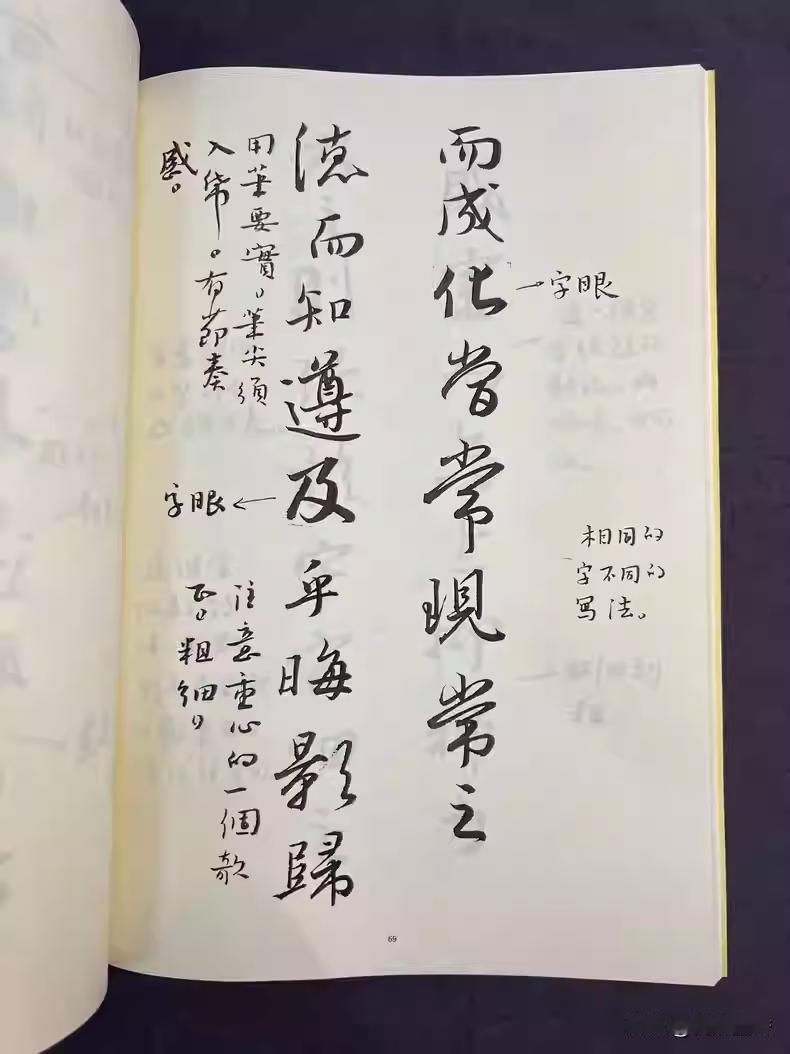 而成化當常現常之
字眼
相同的
字不同的
写法。
德而知遵及乎晦影歸
用筆要實，筆尖須
入帋。有節奏
感。
字眼
注意重心的一個欹
正，粗細，
69